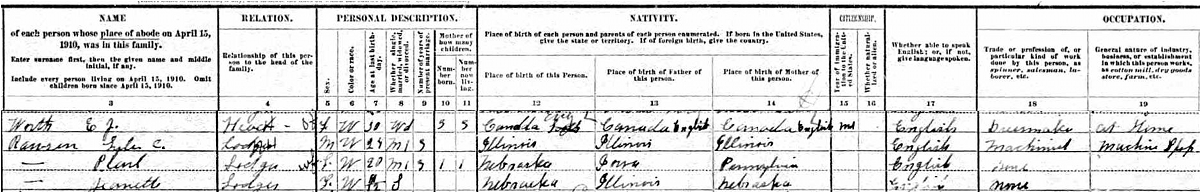 NAME
RELATION.
PERSONAL DESCRIPTION.
NATIVITY.
CITIZENSHIP.
OCCUPATION.
of each person whose place of abode on April 15, 1910, was in this family.
Enter surname first, then the given name and middle initial, if any.
Include every person living on April 15, 1910. Omit children born since April 15, 1910.
Relationship of this person to the head of the family.
Sex.
Color or race.
Age at last birthday.
Whether single, married, widowed, or divorced.
Number of years of present marriage.
Mother of how many children.
Number born.
Number now living.
Place of birth of each person and parents of each person enumerated. If born in the United States, give the state or territory. If of foreign birth, give the country.
Place of birth of this Person.
Place of birth of Father of this person.
Place of birth of Mother of this person.
Year of immigration to the United States.
Whether naturalized or alien.
Whether able to speak English; or, if not, give language spoken.
Trade or profession of, or particular kind of work done by this person, as spinner, salesman, laborer, etc.
General nature of industry, business, or establishment in which this person works, as cotton mill, dry goods store, farm, etc.
3 4 5 6 7 8 9 10 11 12 13 14 15 16 17 18 19
Worth E J. Head F W Wd 5 5 Canada English Canada English Canada English English Dressmaker at Home
Rawson C. Lodger M W 29 M1 Illinois Illinois Illinois English Machinist Machine Shop
— Pearl Lodger F W 20 M1 1 1 Nebraska Iowa English none
— Jeanett Lodger F W S Nebraska Illinois Nebraska none